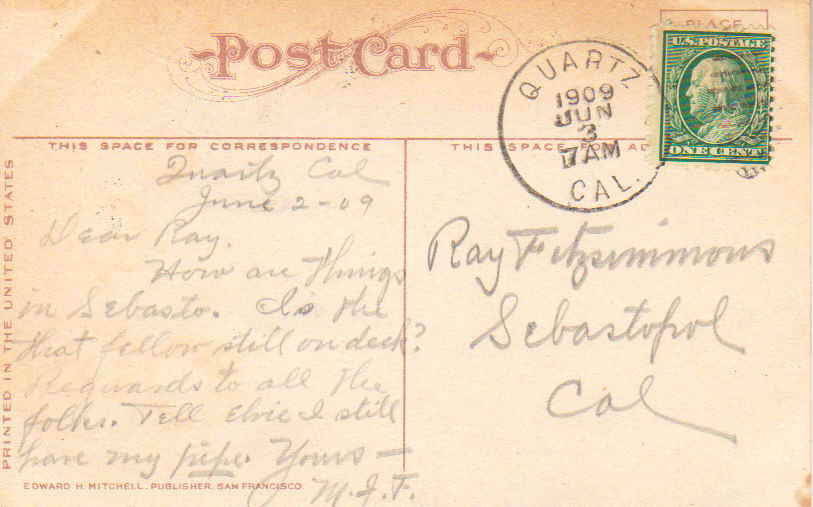 Post Card
PLACE
U.S. POSTAGE
ONE CENT
QUARTZ
1909
JUN
3
7 AM
CAL.
THIS SPACE FOR CORRESPONDENCE
THIS SPACE FOR AD
PRINTED IN THE UNITED STATES
Quartz Cal
June 2-09
Dear Ray.
How are things
in Sebasto. Is the
that fellow still on deck?
Reguards to all the
folks. Tell Elvie I still
have my pipe. Yours —
M.J.F.
EDWARD H. MITCHELL, PUBLISHER, SAN FRANCISCO.
Ray Fitzsimmons
Sebastopol
Cal